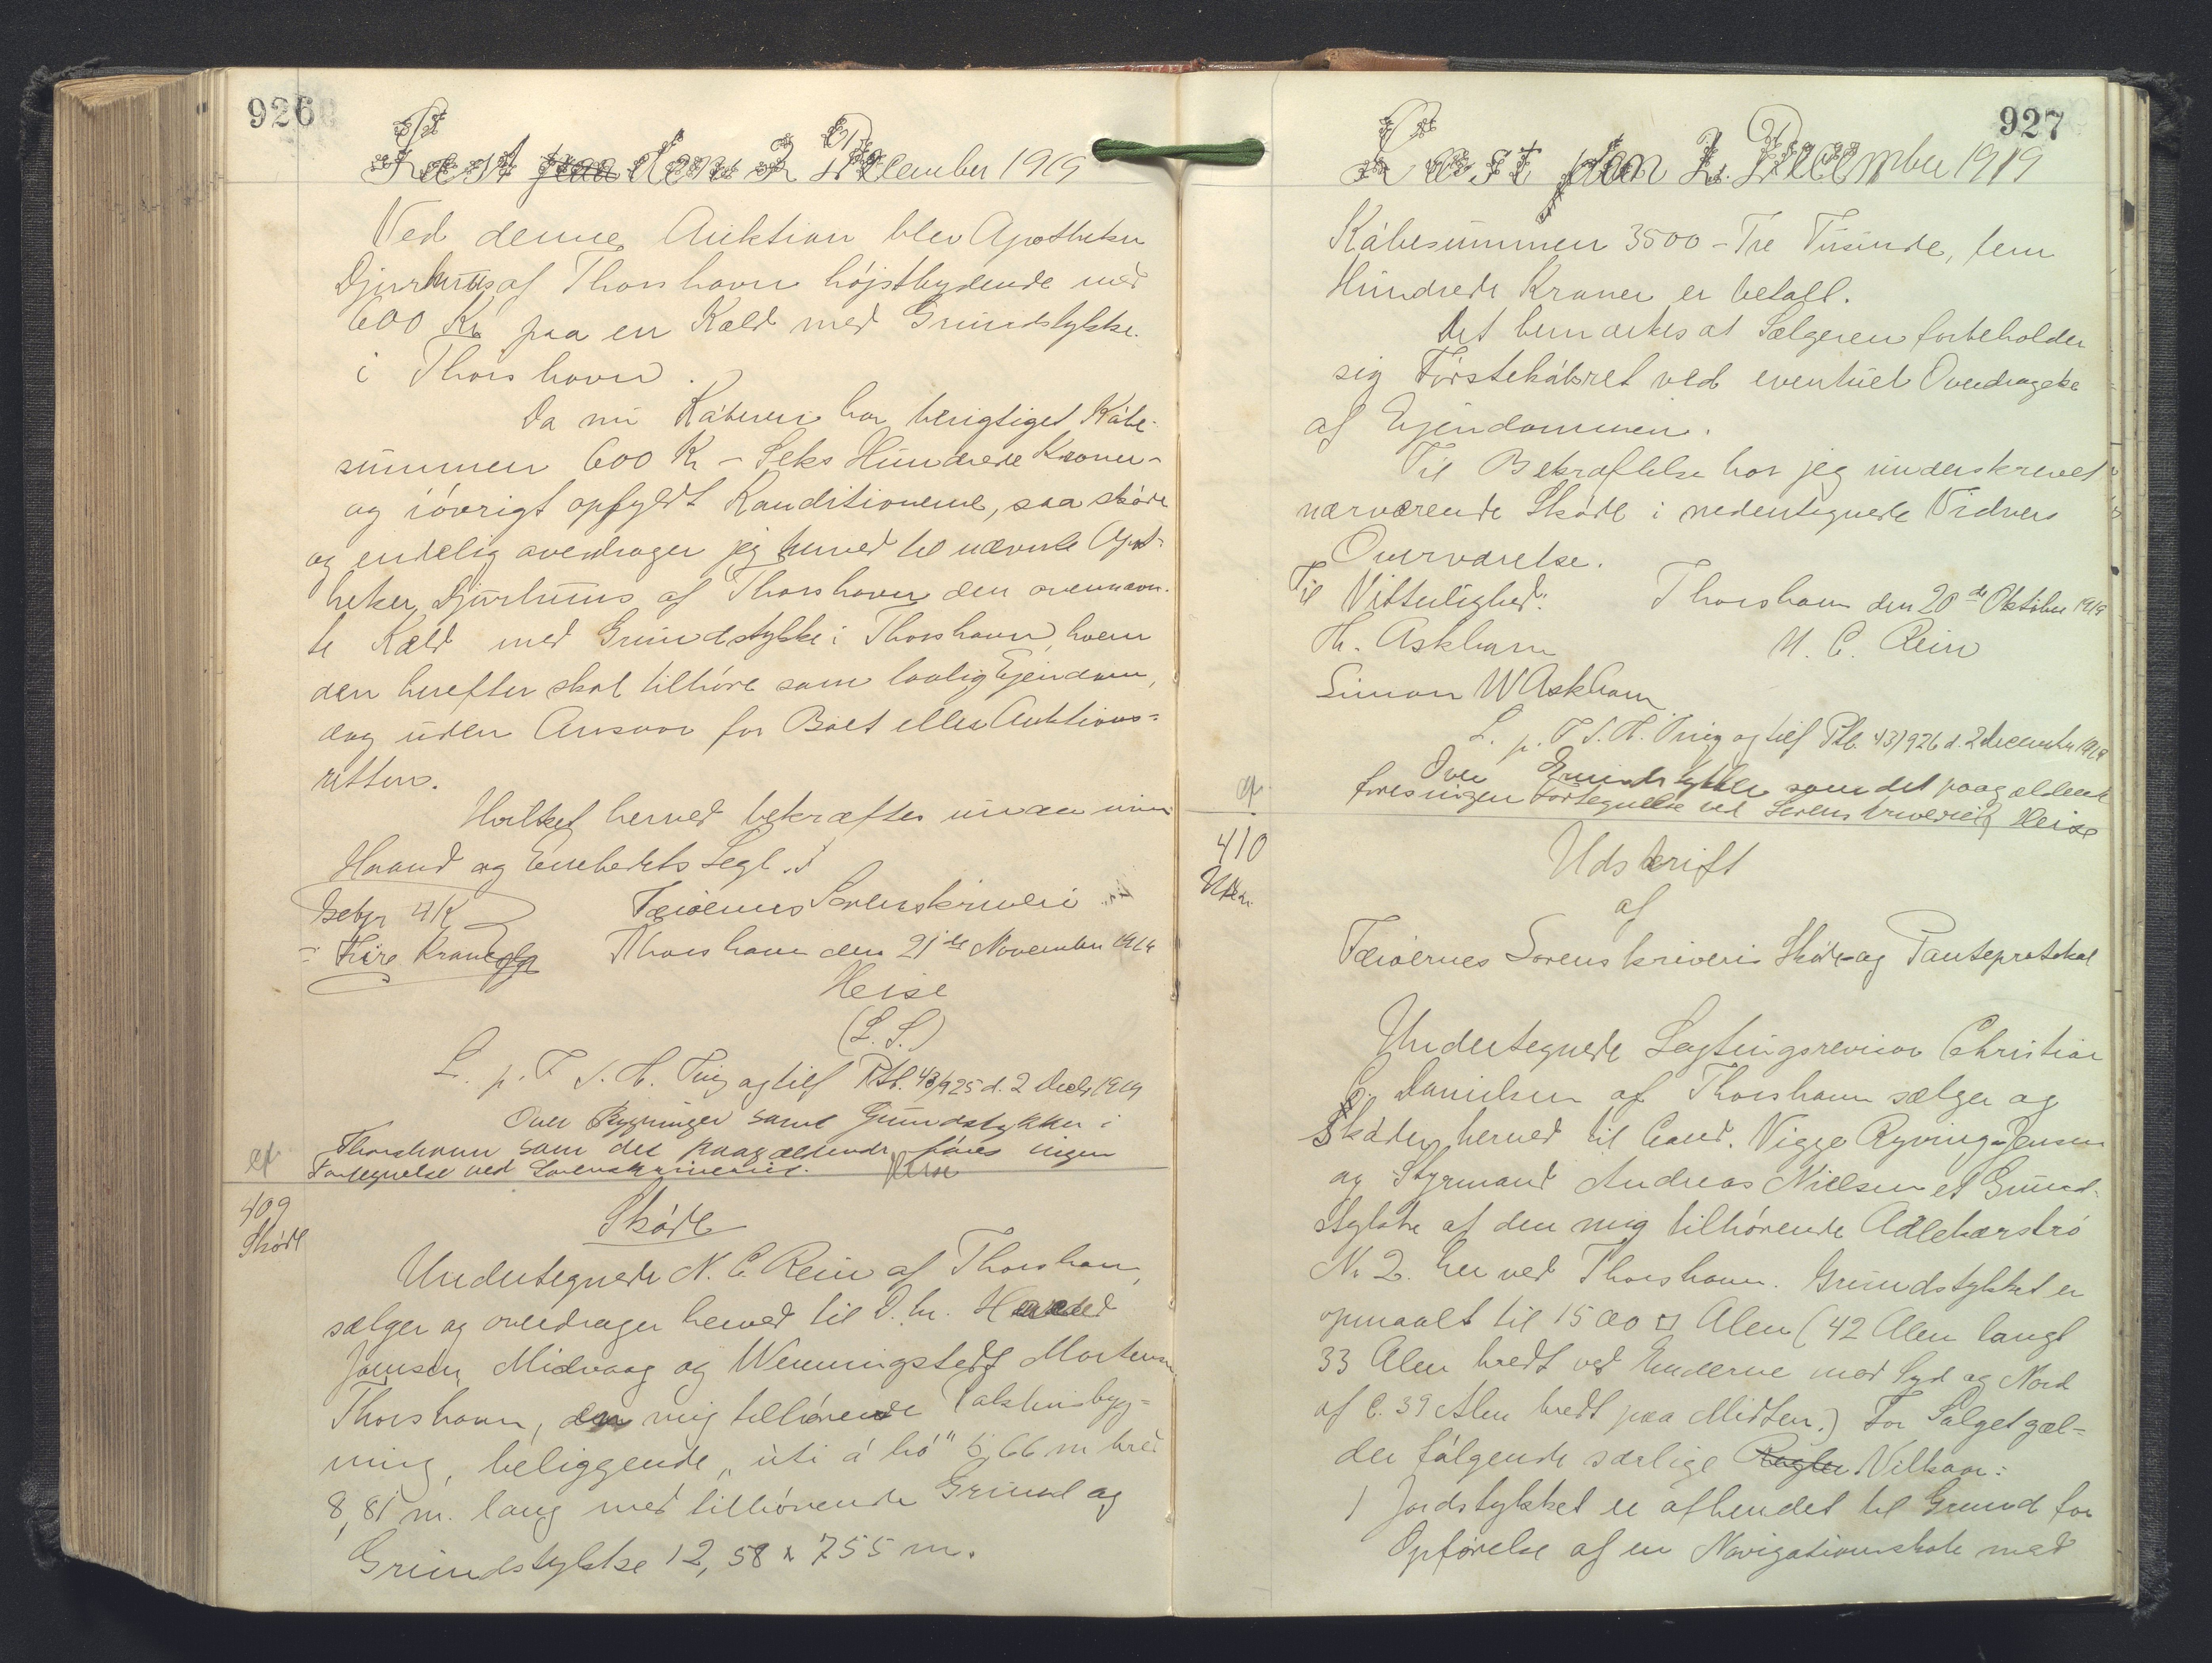 926
Læst paa den 2 December 1919
Ved denne Auktion blev Apotheker
Djurhuus af Thorshavn højstbydende med
600 Kr paa en Kæld med Grundstykke
i Thorshavn.
Da nu Køberen har berigtiget Købe-
summen 600 Kr – Seks Hundrede Kroner –
og iøvrigt opfyldt Konditionerne, saa skøder
og endelig overdrager jeg herved til nævnte Apot-
heker Djurhuus af Thorshavn den ovennævn-
te Kæld med Grundstykke i Thorshavn, hvem
den herefter skal tilhøre som lovlig Ejendom,
dog uden Ansvar for Boet eller Auktions-
retten.
Hvilket herved bekræftes under min
Haand og Embedets Segl.
Gebyr 4 K
Færøernes Sorenskriveri
= Fire Kroner
Thorshavn den 21de November 1919
Heise
(L. S.)
L. p. F. S. H. Ting og tilf Ptb. 43/925 d. 2 Decbr 1919
Over Bygninger samt Grundstykker i
Thorshavn som det paagældende føres ingen
Fortegnelse ved Sorenskriveriet. Heise
409
Skøde
Skøde
Undertegnede N. C. Rein af Thorshavn,
sælger og overdrager herved til D. hr.
Joensen, Midvaag og Wenningstedt Mortensen
Thorshavn, den mig tilhørende Pakhusbyg-
ning, beliggende "úti á hó" 5,66 m bred
8,81 m. lang med tilhørende Grund og
Grundstykke 12,58 x 7.55 m.
927
Læst den 2. December 1919
Købesummen 3500 – Tre Tusinde, fem
Hundrede Kroner er betalt.
Det bemærkes at Sælgeren forbeholder
sig Førstekøbsret ved eventuel Overdragelse
af Ejendommen.
Til Bekræftelse har jeg underskrevet
nærværende Skøde i nedentegnede Vidners
Overværelse.
Til Vitterlighed: Thorshavn den 20de Oktober 1919
H. Askham N. C. Rein
Simon W Askham
L. p. F. S. H. Ting og tilf Ptb. 43/926 d. 2 december 1919
Over Grundstykker som det paagældende
føres ingen Fortegnelse ved Sorenskriveriet Heise
410
Udskrift
af
Færøernes Sorenskriveris Skøde- og Panteprotokol
Undertegnede Lagtingsrevisor Christian
Danielsen af Thorshavn sælger og
skøder herved til Cand. Viggo Ryving-Jensen
og Styrmand Andreas Nielsen et Grund-
stykke af den mig tilhørende
N. 2. her ved Thorshavn. Grundstykket er
opmaalt til 1500 □ Alen (42 Alen langt
33 Alen bredt ved Enderne mod Syd og Nord
af c. 39 Alen bredt paa Midten.) For Salget gæl-
der følgende særlige Regler Vilkaar:
1 Jordstykket er afhendet til Grund for
Opførelse af en Navigationsskole med